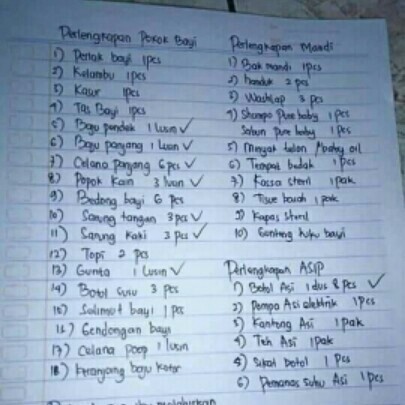 Perlengkapan Pokok Bayi
1) Perlak bayi 1pcs
2) Kelambu 1pcs
3) Kasur 1pcs
4) Tas Bayi 1pcs
5) Baju pendek 1 lusin ✓
6) Baju panjang 1 lusin ✓
7) Celana panjang 6 pcs ✓
8) Popok Kain 3 lusin ✓
9) Bedong bayi 6 pcs
10) Sarung tangan 3 pcs ✓
11) Sarung Kaki 3 pcs ✓
12) Topi 2 pcs
13) Gurita 1 lusin ✓
14) Botol susu 3 pcs
15) Selimut bayi 1 pcs
16) Gendongan bayi
17) Celana poop 1 lusin
18) Keranjang baju kotor
Perlengkapan Mandi
1) Bak mandi 1pcs
2) Handuk 2 pcs
3) Washlap 3 pcs
4) Shampo Pure baby 1 pcs
Sabun pure baby 1 pcs
5) Minyak telon / baby oil
6) Tempat bedak 1 pcs
7) Kassa steril 1 pak
8) Tisue basah 1 pak
9) Kapas steril
10) Gunting kuku bayi
Perlengkapan ASIP
1) Botol Asi 1 dus 8 pcs ✓
2) Pompa Asi elektrik 1 pcs
3) Kantong Asi 1 pak
4) Teh Asi 1 pak
5) Sikat botol 1 pcs
6) Pemanas suhu Asi 1 pcs